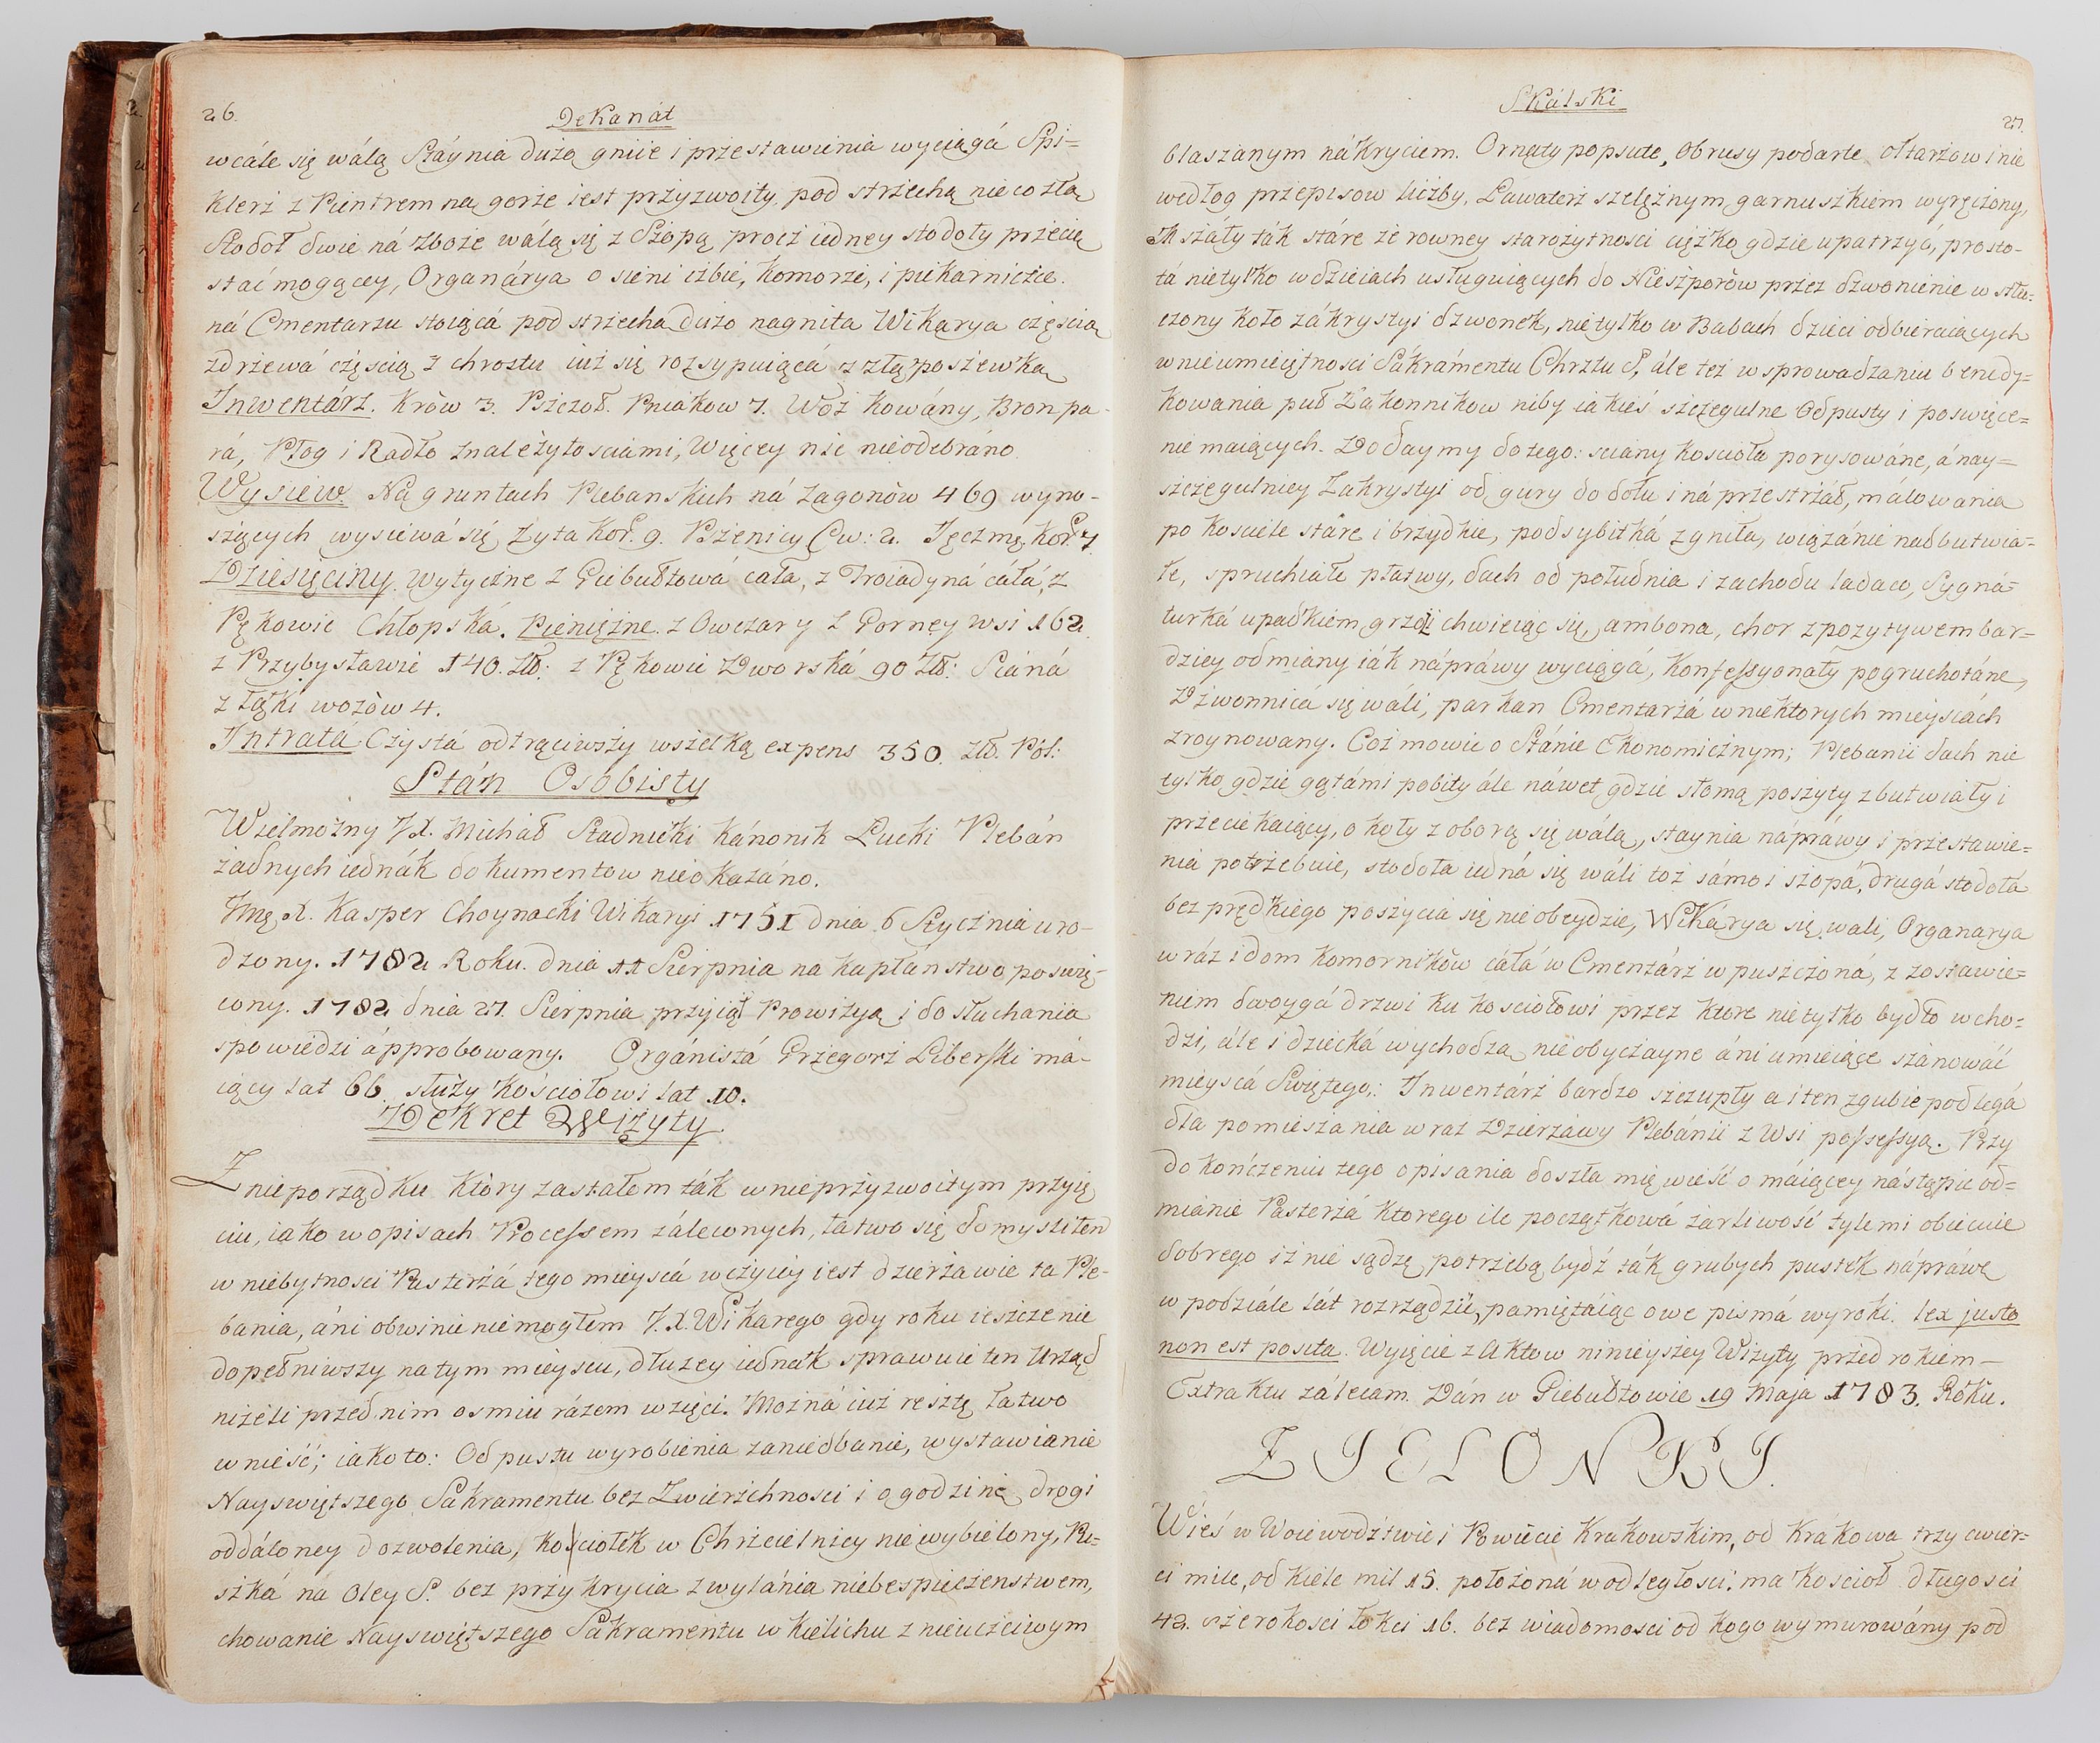 26.
Dekanát
wcále się wálą Stáynia dużo gniie i przestawienia wyciągá Spi=
klerz z Pientrem na gorze iest przyzwoity pod strzechą nieco złą
Stodoł dwie ná zboże wálą się z Szopą procz iedney stodoły przecię
stać mogącey, Organárya o sieni izbie, komorze, i piekarnicżce.
ná Cmentarzu stoiącá pod strzechą dużo nagniłą Wikarya częscią
zdrzewá częscią z chrostu iuż się rozsypuiącá z złą poszewką
Inwentárz. Krów 3. Pszczoł. Pniakow 7. Woz kowány, Bron pa-
rá, Pług i Radło znależytosciami, Więcey nic nieodebráno.
Wysiew Na gruntach Plebanskich ná zagonòw 469 wyno-
szących wysiewá się Zyta Kor. 9. Pszenicy Cw: 2. Jęczmę. Kor. 7
Dziesięciny Wytyczne z Giebułtowá cała, z Troiadyná cáłá, z
Pękowic Chłopská. Pieniężne. z Owczary z Gorney wsi 162
z Przybysławic 140. Zł: z Pękowic Dworská 90 Zł: Sianá
z łąki wozòw 4.
Intrata Czystá odtrąciwszy wszelką expens 350. Zł. Pol:
Stán Osobisty
Wielmożny JX. Michał Stadnicki Kánonik Łucki Plebán
żadnych iednák dokumentow nieokazáno.
Jmę X. Kasper Choynacki Wikaryi 1751 dnia 6 Stycżnia uro-
dzony. 1782 Roku. dnia 11 Sierpnia na kapłanstwo poswię-
cony. 1782 dnia 27. Sierpnia przyiął Prowizyą i do słuchania
spowiedzi ápprobowany. Orgánistá Grzegorz Liberski má-
iący lat 66. służy Kościołowi lat 10.
Dekret Wizyty.
Z nieporządku który zastałem ták wnieprzyzwoitym przyię
ciu, iako wopisach Processem zálecónych, łatwo się domysli ten
w niebytnosci Pasterzá tego mieyscá w czyiey iest dzierżawie ta Ple-
bania, áni obwinić niemogłem J.X. Wikarego gdy roku ieszcze nie
dopełniwszy na tym mieyscu, dłużey iednak sprawuie ten Urząd
nizeli przed nim osmiu rázem wzięci. Możná iuż resztę łatwo
wnieść; iako to: Odpustu wyrobienia zaniedbanie, wystawianie
Nayswiętszego Sakramentu bez Zwierzchnosci i o godzinę drogi
oddáloney dozwolenia, kosciołek w Chrzcielnicy niewybielony, Pu=
szká na Oley S. bez przykrycia z wylánia niebespieczenstwem,
chowanie Nayswiętszego Sakramentu w Kielichu z nieuczciwym
Skálski
27.
blaszanym nákryciem. Ornaty popsute, Obrusy podarte ołtarzow i nie
według przepisow liczby, Lawaterz szelężnym garnuszkiem wyręczony,
Mszáły ták stáre że rowney starożytnosci ciężko gdzie upatrzyć, prosto-
tá nietylko w dzieciach usługuiących do Nieszporòw przez dzwonienie w stłu-
czony koło zákrystyi dzwonek, nietylko w Babach dzieci odbieraiących
w nieumieiętnosci Sákrámentu Chrztu S, ále też w sprowadzaniu benedy=
kowania puł Zakonnikow niby iakieś szczegulne Odpusty i poswięce=
nie maiących. Dodaymy do tego: sciany kosciołá porysowáne, á nay=
szczegulniey Zakrystyi od gury do dołu i ná przestrzáł, málowania
po kosciele stáre i brzydkie, podsybitká zgniła, wiązánie nadbutwia=
łe, spruchiałe płatwy, dach od południa i zachodu ladaco, Sygná=
turká upadkiem grozi chwieiąc się, ambona, chor z pozytywem bar=
dziey odmiany iák nápráwy wyciągá, Konfessyonały pogruchotáne,
Dzwonnicá się wáli, parkan Cmentarzá w niektorych mieyscách
zroynowany. Coż mowić o Stánie Ekonomicżnym; Plebanii dach nie
tylko gdzie gątámi pobity ále náwet gdzie słomą poszyty zbutwiały i
przeciekaiący, okoły z oborą się wálą, staynia nápráwy i przestawie=
nia potrzebuie, stodoła iedná się wáli toż sámo i szopá, drugá stodołá
bez prędkiego poszycia się nieobeydzie, Wikárya się wali, Organarya
w ráz i dom komornikòw cáłá w Cmentárz wpuszczoná, z zostawie=
niem dwoygá drzwi ku kosciołowi przez ktore nietylko bydło wcho=
dzi, ále i dziecká wychodzą nieobyczayne áni umieiące szánowáć
mieyscá Swiętego: Inwentárz bardzo szczupły a i ten zgubie podlegá
dla pomieszania wraz Dzierzáwy Plebánii z Wsi possessyą. Przy
dokończeniu tego opisania doszła mię wieść o máiącey nástąpić od=
mianie Pasterzá ktorego ile początkowá żarliwość tyle mi obiecuie
dobrego iż nie sądzę potrzebą bydź ták grubych pustek nápráwę
w podziále lát rozrządzić, pamiętáiąc owe pismá wyroki. lex justo
non est posita. Wyięcie z Aktow ninieyszey Wizyty przed rokiem —
Extraktu zálecam. Dán w Giebułtowie 19 Maja 1783. Roku.
ZIELONKI.
Wieś w Woiewodztwie i Powiecie Krakowskim, od Krakowa trzy cwier-
ci mile, od Kielc mil 15. położoná w odległosci; ma kościoł długosci
42. szerokosci łokci 16. bez wiadomosci od kogo wymurowány pod